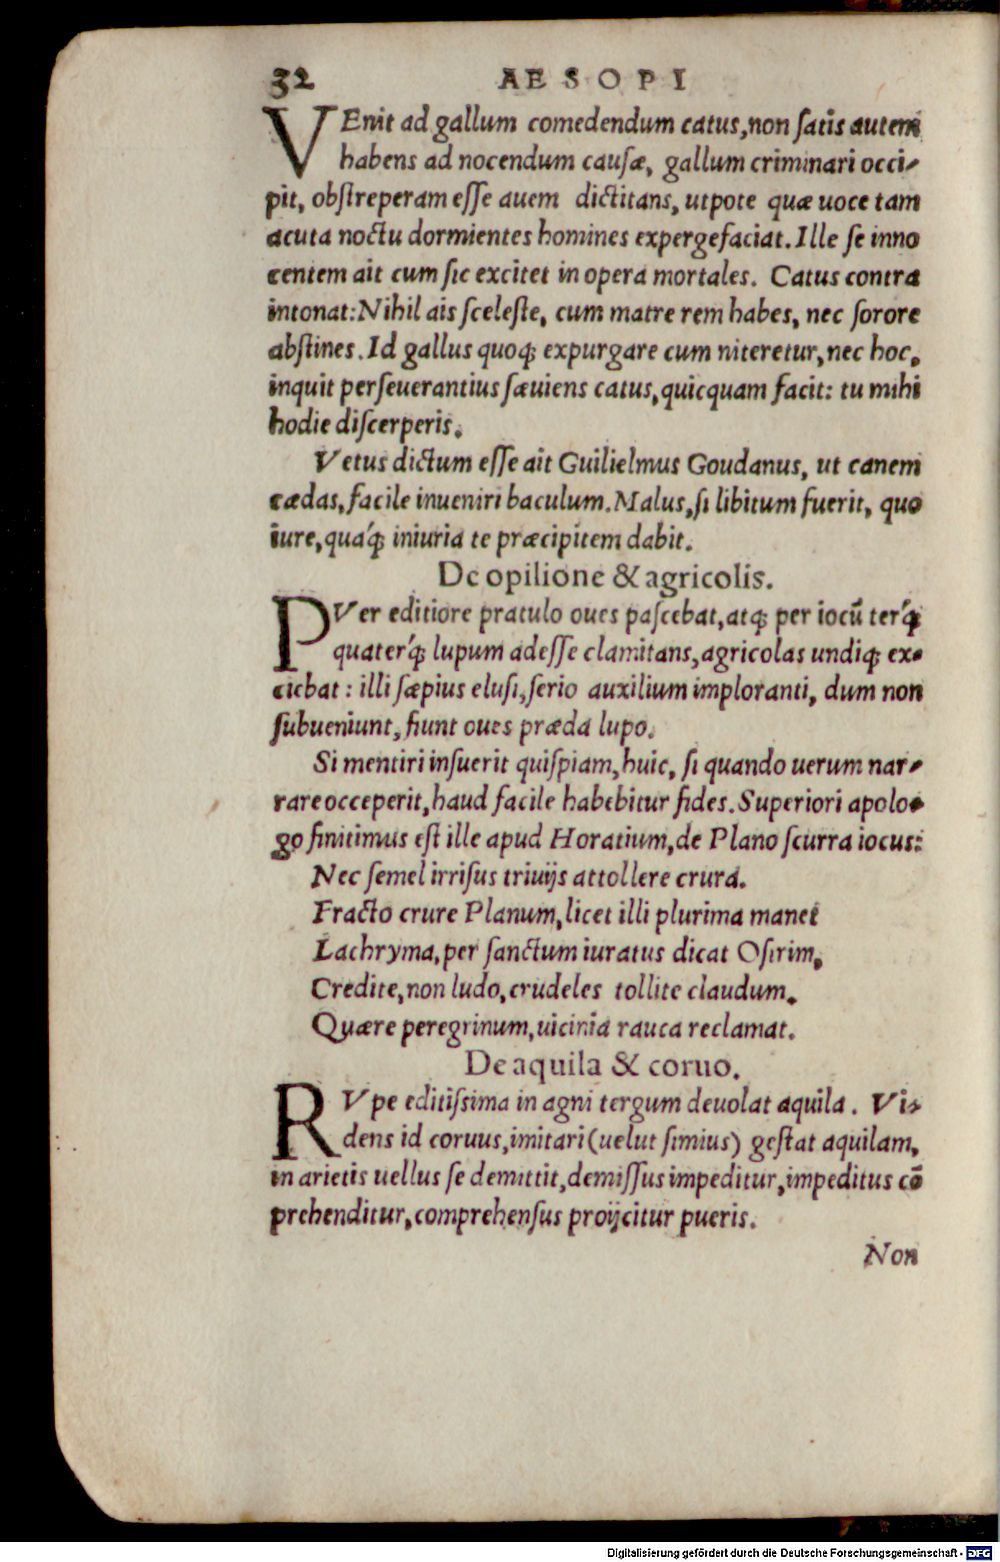 32 AESOPI
VEnit ad gallum comedendum catus, non ſatis autem
habens ad nocendum cauſæ, gallum criminari occi-
pit, obſtreperam eſſe auem dictitans, utpote quæ uoce tam
acuta noctu dormientes homines expergefaciat. Ille ſe inno
centem ait cum ſic excitet in opera mortales. Catus contra
intonat: Nihil ais ſceleſte, cum matre rem habes, nec ſorore
abſtines. Id gallus quoq; expurgare cum niteretur, nec hoc,
inquit perſeuerantius ſæuiens catus, quicquam facit: tu mihi
hodie diſcerperis.
Vetus dictum eſſe ait Guilielmus Goudanus, ut canem
cædas, facile inueniri baculum. Malus, ſi libitum fuerit, quo
iure, quáq; iniuria te præcipitem dabit.
De opilione & agricolis.
PVer editiore pratulo oues paſcebat, atq; per iocū terq́;
quaterq́; lupum adeſſe clamitans, agricolas undiq; ex-
ciebat: illi ſæpius eluſi, ſerio auxilium imploranti, dum non
ſubueniunt, fiunt oues præda lupo.
Si mentiri inſuerit quiſpiam, huic, ſi quando uerum nar-
rare occeperit, haud facile habebitur fides. Superiori apolo-
go finitimus eſt ille apud Horatium, de Plano ſcurra iocus:
Nec ſemel irriſus triuijs attollere crura.
Fracto crure Planum, licet illi plurima manet
Lachryma, per ſanctum iuratus dicat Oſirim,
Credite, non ludo, crudeles tollite claudum.
Quære peregrinum, uicinia rauca reclamat.
De aquila & coruo.
RVpe editiſſima in agni tergum deuolat aquila. Vi-
dens id coruus, imitari (uelut ſimius) geſtat aquilam,
in arietis uellus ſe demittit, demiſſus impeditur, impeditus cō
prehenditur, comprehenſus proijcitur pueris.
Non
Digitalisierung gefördert durch die Deutsche Forschungsgemeinschaft - DFG